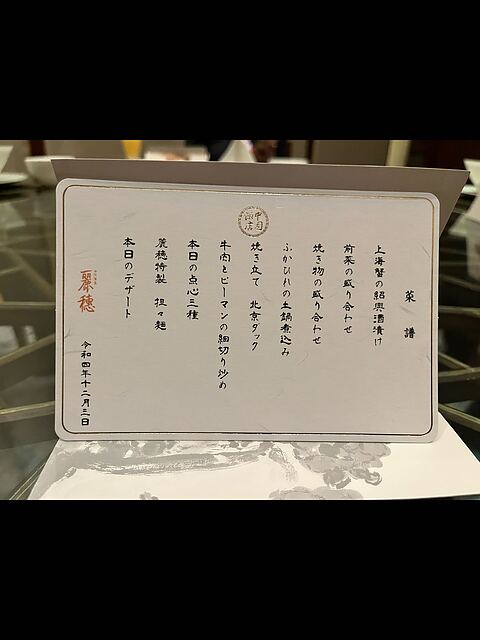 菜譜
上海蟹の紹興酒漬け
前菜の盛り合わせ
焼き物の盛り合わせ
ふかひれの土鍋煮込み
焼き立て 北京ダック
牛肉とピーマンの細切り炒め
本日の点心三種
麗穂特製 担々麺
本日のデザート
麗穂
令和四年十二月三日